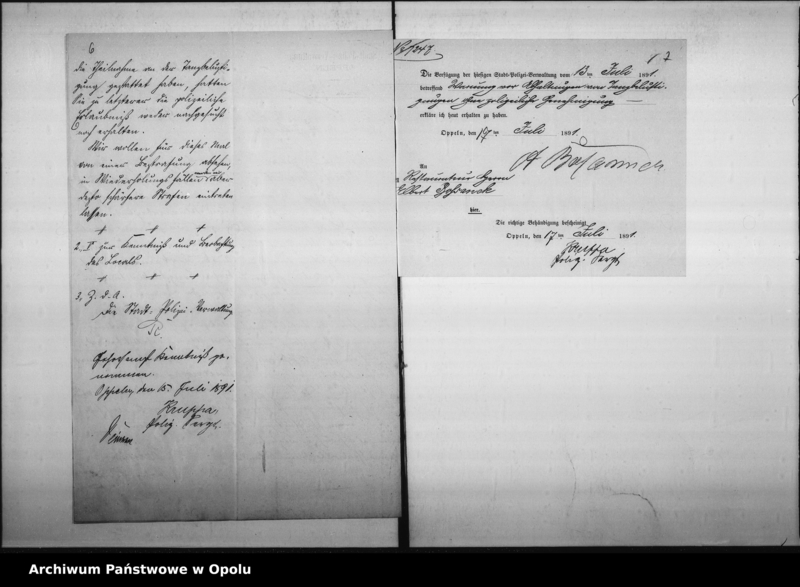 6
die Theilnahme an der Tanzbelusti-
gung gestattet haben, hatten
Sie zu letzterer die polizeiliche
Erlaubniß weder nachgesucht
noch erhalten.
Wir wollen für dieses Mal
von einer Bestrafung absehen,
in Wiederholungsfällen aber
desto schärfere Strafen eintreten
lassen.
2, zur Kenntniß und Beobachtung
des Locals.
3, Z. d. A.
Die Stadt-Polizei-Verwaltung
Gehorsamst Kenntniß ge-
nommen.
Oppeln, den 15. Juli 1891.
Kruppa
Poliz. Sergt.
7
Die Verfügung der hiesigen Stadt-Polizei-Verwaltung vom 13ten Juli 1891.
betreffend Warnung vor Abhaltungen von Tanzbelusti-
gungen ohne polizeiliche Genehmigung —
erkläre ich heut erhalten zu haben.
Oppeln, den 17ten Juli 1891
An
Restaurateur Herrn
Albert
hier.
Die richtige Behändigung bescheinigt
Oppeln, den 17ten Juli 1891.
Kruppa
Poliz. Sergt
Archiwum Państwowe w Opolu